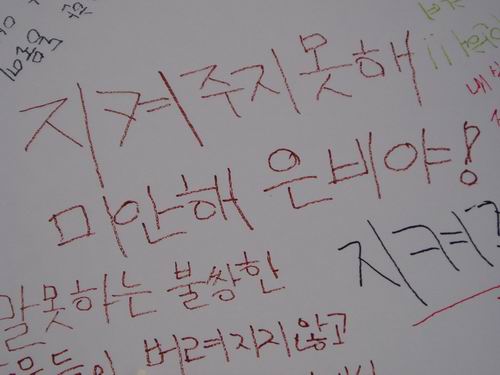 지켜주지못해
미안해 은비야!
지켜
말못하는 불쌍한
버려지지 않고